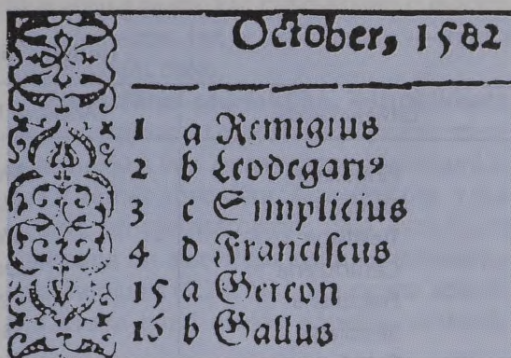 October, 1582
1 a Remigius
2 b Leodegariꝰ
3 c Simplicius
4 d Franciſcus
15 a Gereon
16 b Gallus